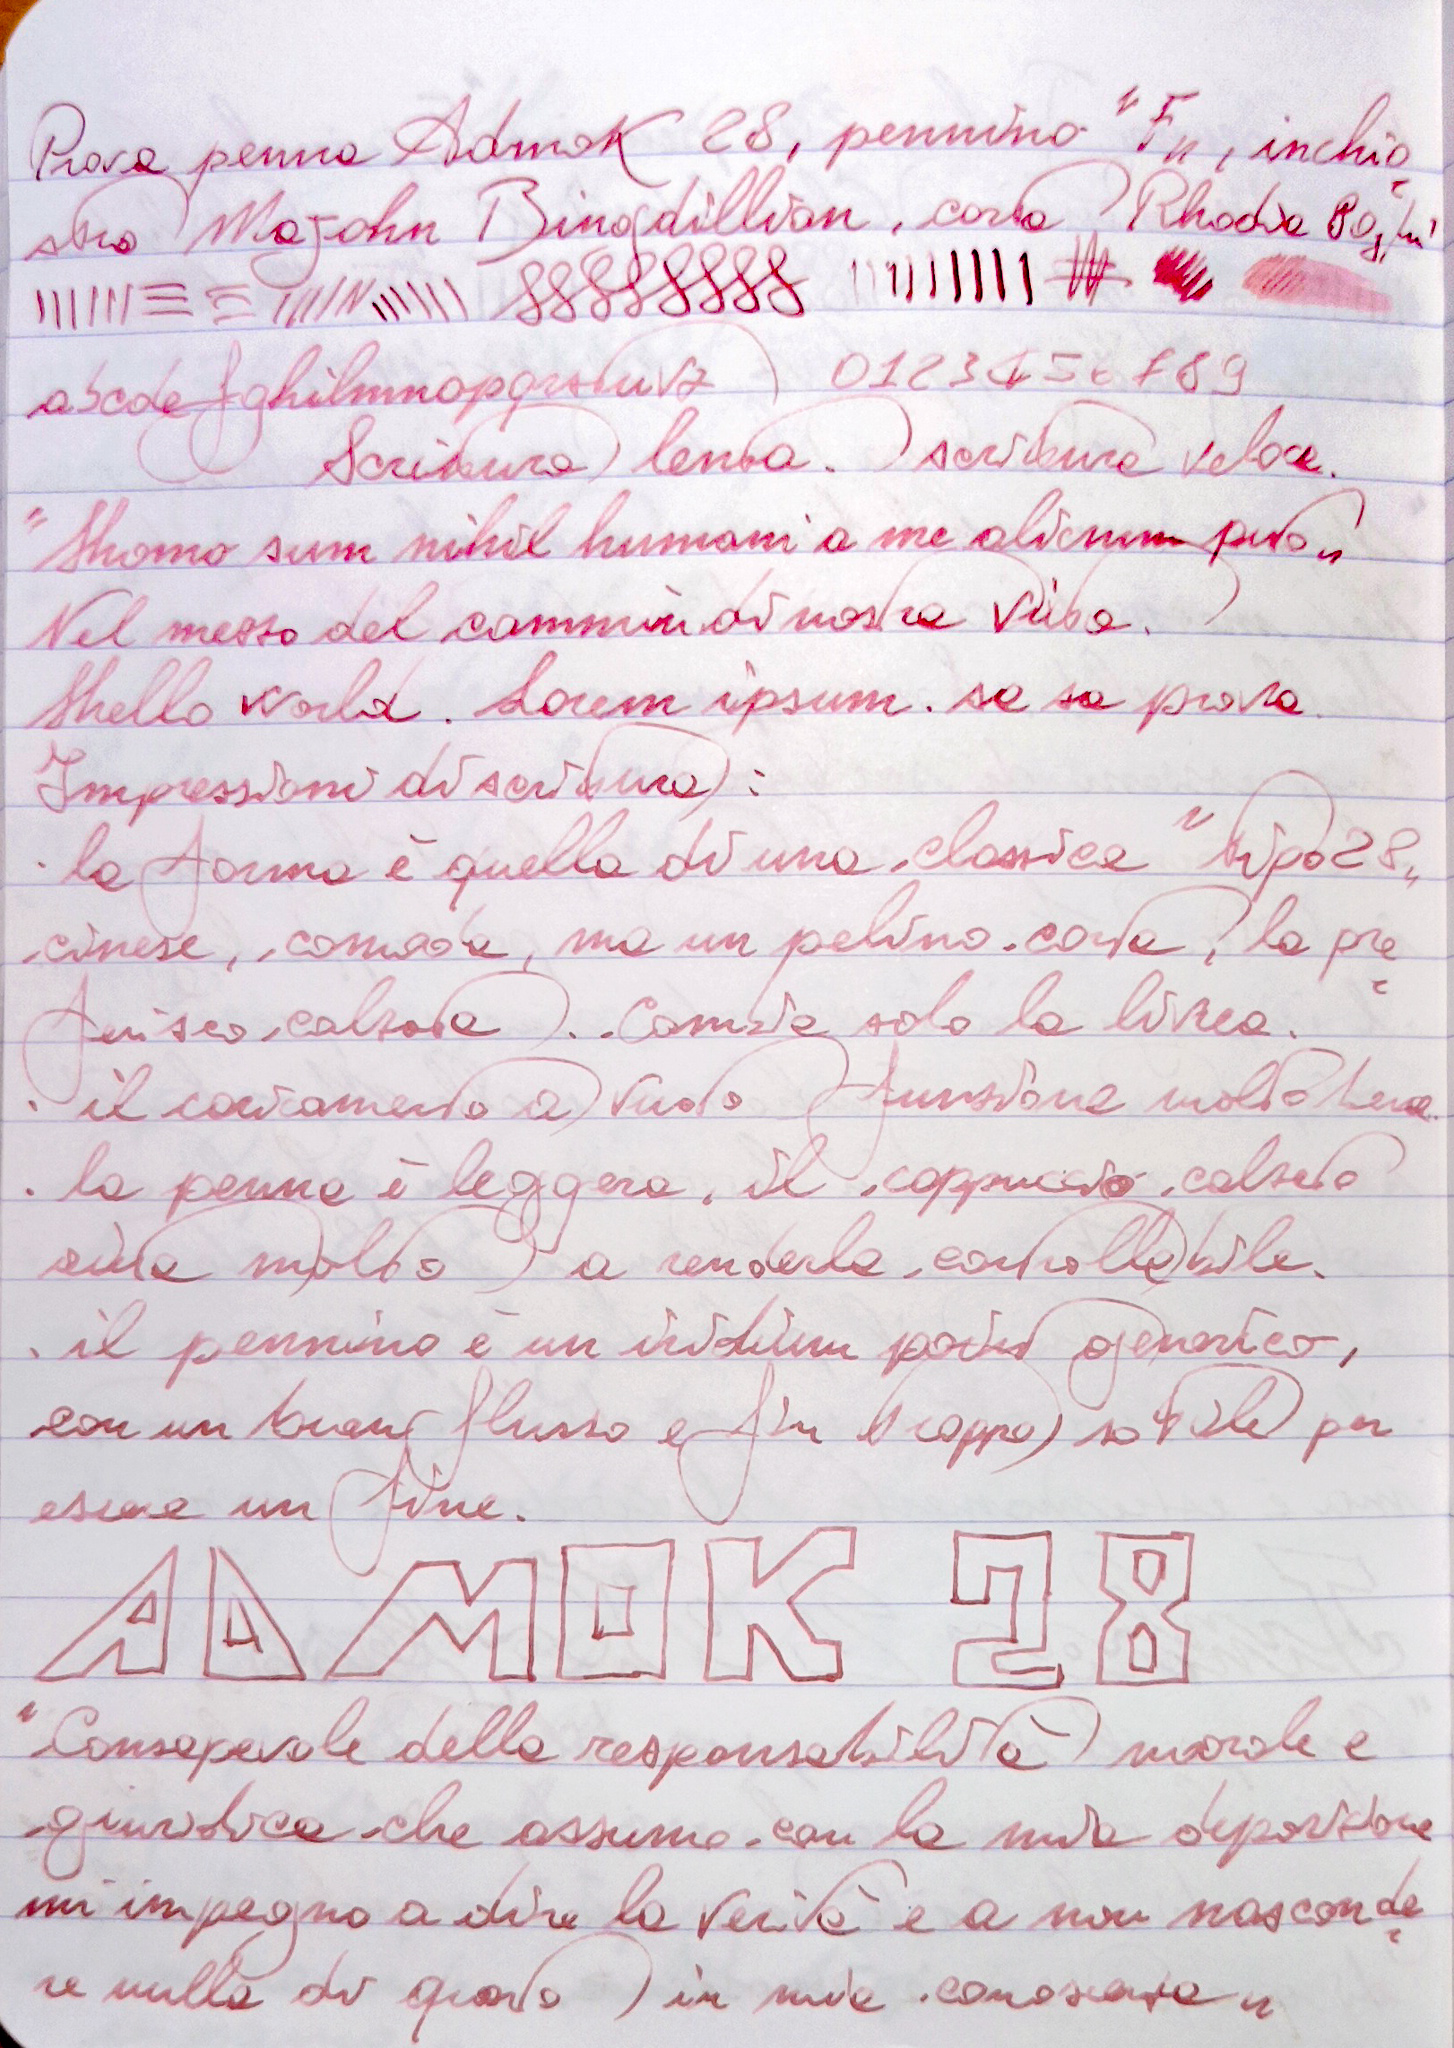 Prova penna Admok 28, pennino "F", inchio
stro Majohn Bingdillian, carta Rhodia 80g/m²
abcdefghilmnopqrstuvz 0123456789
Scrittura lenta. scrittura veloce.
"Homo sum nihil humani a me alienum puto"
Nel mezzo del cammin di nostra vita.
Hello world. Lorem ipsum. sa sa prova.
Impressioni di scrittura:
· la forma è quella di una classica "tipo 28"
cinese, comoda, ma un pelino corta, la pre
ferisco calzata. Cambia solo la livrea.
· il caricamento a vuoto funziona molto bene.
· la penna è leggera, il cappuccio calzato
aiuta molto a renderla controllabile.
· il pennino è un iridium point generico,
con un buon flusso e fin troppo sottile per
essere un fine.
ADMOK 28
"Consapevole della responsabilità morale e
giuridica che assumo con la mia deposizione
mi impegno a dire la verità e a non nasconde
re nulla di quanto in mia conoscenza"